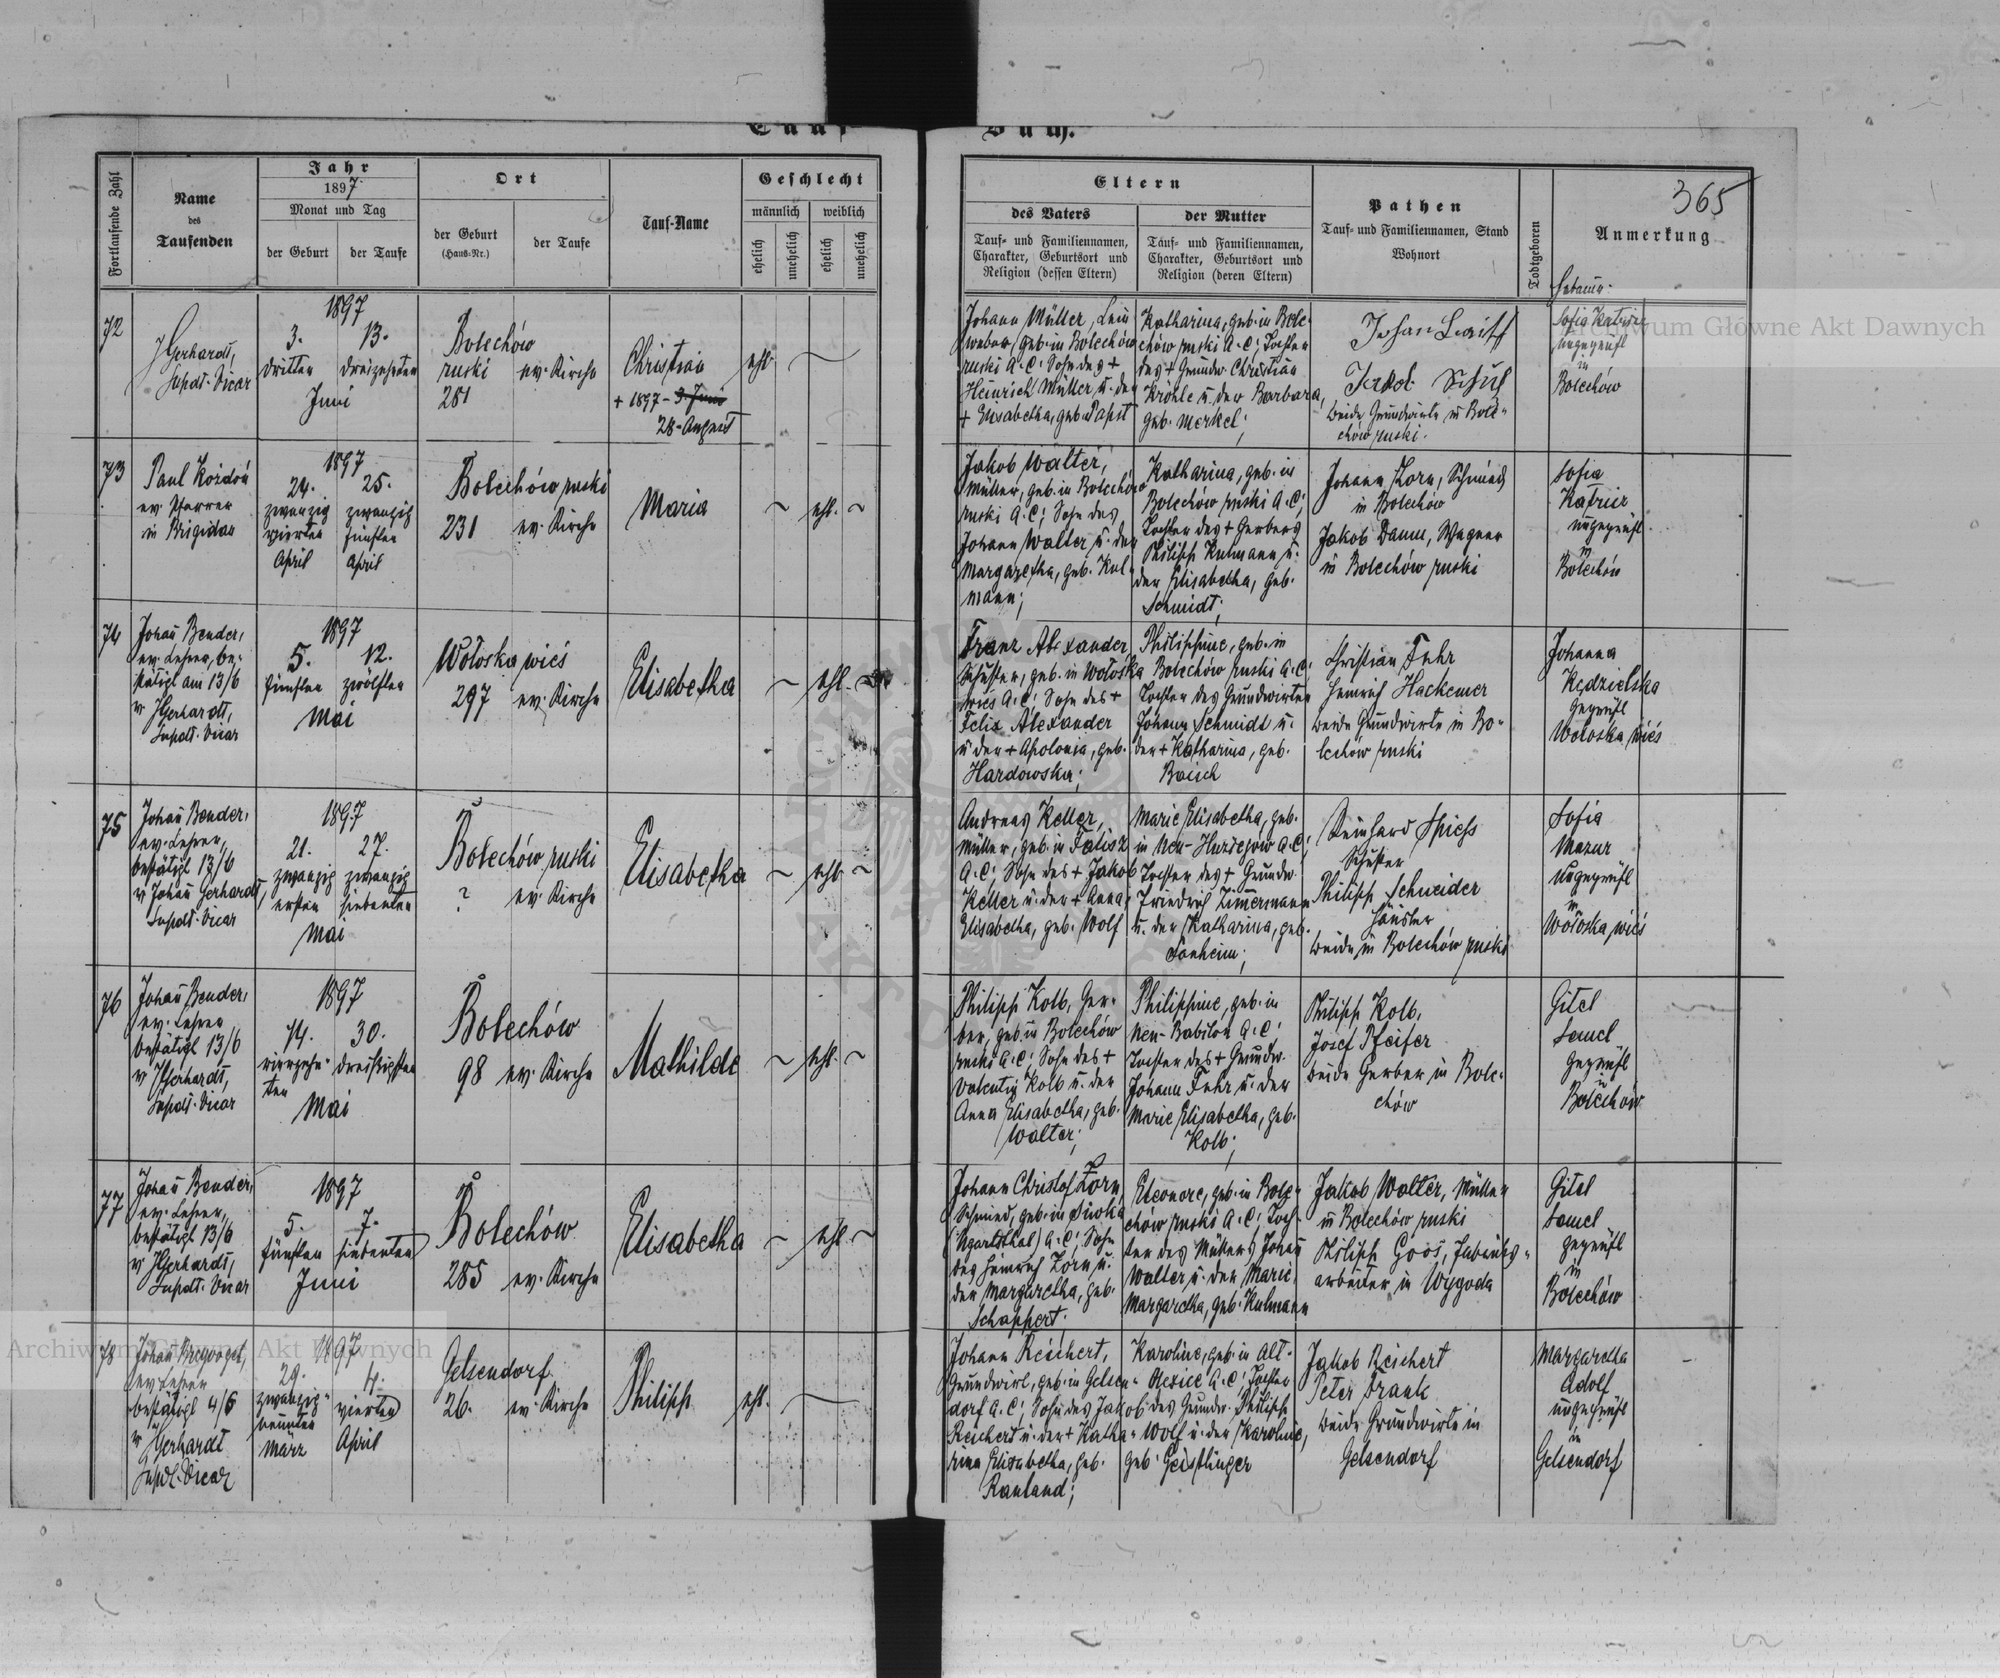 Tauf- Buch.
365
Fortlaufende Zahl
Name
des
Taufenden
Jahr
1897.
Monat und Tag
der Geburt
der Taufe
Ort
der Geburt
(Haus-Nr.)
der Taufe
Tauf-Name
Geschlecht
männlich
weiblich
ehelich
unehelich
ehelich
unehelich
Eltern
des Vaters
Tauf- und Familiennamen,
Charakter, Geburtsort und
Religion (dessen Eltern)
der Mutter
Tauf- und Familiennamen,
Charakter, Geburtsort und
Religion (deren Eltern)
Pathen
Tauf- und Familiennamen, Stand
Wohnort
Todtgeboren
Anmerkung
Hebamme:
72
JGerhardt,
Supdt. Vicar
1897
3.
dritten
13.
dreizehnten
Juni
Bolechów
ruski
281
ev. Kirche
Christian
+ 1897 - 3 Juni
28 - August
ehl.
Johann Müller, Lein
weber, geb. in Bolechów
ruski A.C; Sohn des +
Heinrich Müller u. der
+ Elisabetha, geb. Papst
Katharina, geb. in Bole-
chów ruski A.C; Tochter
des + Grundw. Christian
Kröhle u. der Barbara,
geb. Merkel;
Jakob Schul
beide Grundwirte in Bole-
chów ruski.
Sofia Katrier
ungeprüft
in
Bolechów
73
Paul Kozdoń
ev. Pfarrer
in Brigidau
1897
24.
zwanzig
vierten
April
25.
zwanzig
fünften
April
Bolechów ruski
231
ev. Kirche
Maria
ehl.
Jakob Walter,
Müller, geb. in Bolechów
ruski A.C; Sohn des
Johann Walter u. der
Margaretha, geb. Kul-
mann;
Katharina, geb. in
Bolechów ruski A.C;
Tochter des + Gerbers
Philipp Kulmann u.
der Elisabetha, geb.
Schmidt;
Johann Zorn, Schmied
in Bolechów
Jakob Damm, Wagner
in Bolechów ruski
Sofia
Katrier
ungeprüft
in
Bolechów
74
Johan Bender,
ev. Lehrer, be-
stätigt am 13/6
v JGerhardt,
Supdt. Vicar
1897
5.
fünften
12.
zwölften
Mai
Wołoska wieś
297
ev. Kirche
Elisabetha
ehl.
Franz Alexander
Schuster, geb. in Wołoska
wieś A.C; Sohn des +
Felix Alexander
u. der + Apolonia, geb.
Hardowska;
Philippine, geb. in
Bolechów ruski A.C;
Tochter des Grundwirten
Johann Schmidt u.
der + Katharina, geb.
Baisch
Christian Fehr
Heinrich Hackemer
beide Grundwirte in Bo-
lechów ruski
Johanna
Kędzielska
geprüft
Wołoska wieś
75
Johan Bender,
ev. Lehrer,
bestätigt 13/6
v Johan Gerhardt,
Supdt. Vicar
1897
21.
zwanzig
ersten
27.
zwanzig
siebenten
Mai
Bolechów ruski
?
ev. Kirche
Elisabetha
ehl.
Andreas Keller,
Müller, geb. in Falisz
A.C; Sohn des + Jakob
Keller u. der + Anna
Elisabetha, geb. Wolf
Marie Elisabetha, geb.
in Neu-Hurdejów A.C;
Tochter des + Grundw.
Friedrich Zimmermann
u. der Katharina, geb.
Fonheim;
Reinhard Spiess
Schuster
Philipp Schneider
Häusler
beide in Bolechów ruski
Sofia
Mazur
ungeprüft
in
Wołoska wieś
76
Johan Bender,
ev. Lehrer
bestätigt 13/6
v JGerhardt,
Supdt. Vicar
1897
14.
vierzehn-
ten
30.
dreissigsten
Mai
Bolechów
98
ev. Kirche
Mathilde
ehl.
Philipp Kolb, Ger-
ber, geb. in Bolechów
ruski A.C; Sohn des +
Valentin Kolb u. der
Anna Elisabetha, geb.
Walter;
Philippine, geb. in
Neu-Babilon A.C;
Tochter des + Grundw.
Johann Fehr u. der
Marie Elisabetha, geb.
Kolb;
Philipp Kolb,
Josef Pfeifer
beide Gerber in Bole-
chów
Gitel
Semel
geprüft
in
Bolechów
77
Johan Bender,
ev. Lehrer,
bestätigt 13/6
v JGerhardt,
Supdt. Vicar
1897
5.
fünften
7.
siebenten
Juni
Bolechów
285
ev. Kirche
Elisabetha
ehl.
Johann Christof Zorn,
Schmied, geb. in Siwka
(Ugartsthal) A.C; Sohn
des Heinrich Zorn u.
der Margaretha, geb.
Schappert;
Eleonore, geb. in Bole-
chów ruski A.C; Toch-
ter des Müllers Johan
Walter u. der Marie
Margaretha, geb. Kulmann
Jakob Walter, Müller
in Bolechów ruski
Philipp Goos, Fabriks-
arbeiter in Wygoda
Gitel
Semel
geprüft
in
Bolechów
78
Johan Bregvogel,
ev. Lehrer
bestätigt 4/6
v JGerhardt
Supdt. Vicar
1897
29.
zwanzig-
neunten
März
4.
vierten
April
Gelsendorf
26.
ev. Kirche
Philipp
ehl.
Johann Reichert,
Grundwirt, geb. in Gelsen-
dorf A.C; Sohn des Jakob
Reichert u. der + Katha-
rina Elisabetha, geb.
Rauland;
Karoline, geb. in Alt-
Olexice A.C; Tochter
des Grundw. Philipp
Wolf u. der Karoline,
geb. Geistlinger
Jakob Reichert
Peter Frank
beide Grundwirte in
Gelsendorf
Margaretha
Adolf
ungeprüft
in
Gelsendorf
Archiwum Główne Akt Dawnych
Archiwum Główne Akt Dawnych